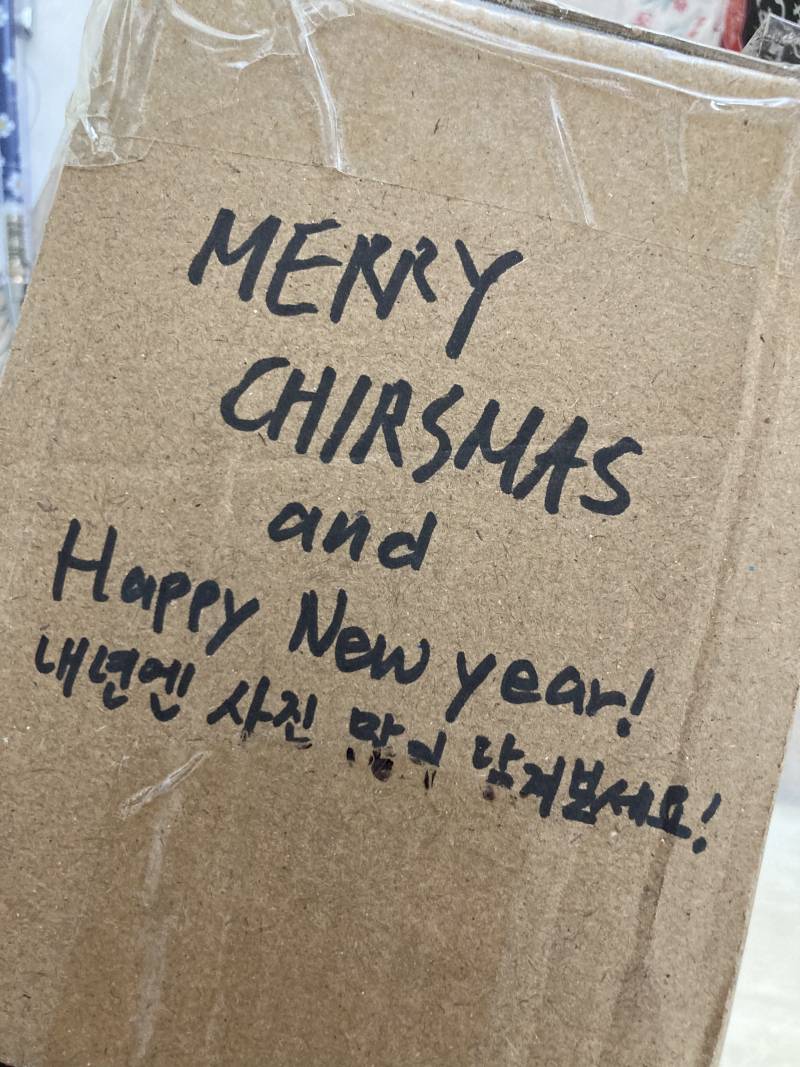 MERRY
CHIRSMAS
and
Happy New year!
내년엔 사진 많이 남겨봅세요!